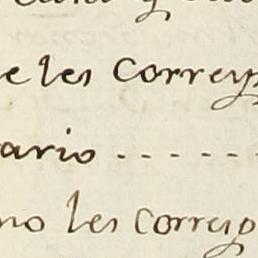 e les Correys
ario - - - - - -
no les Corresp